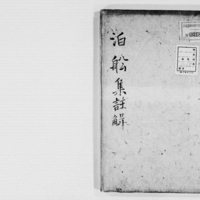 泊船集註解